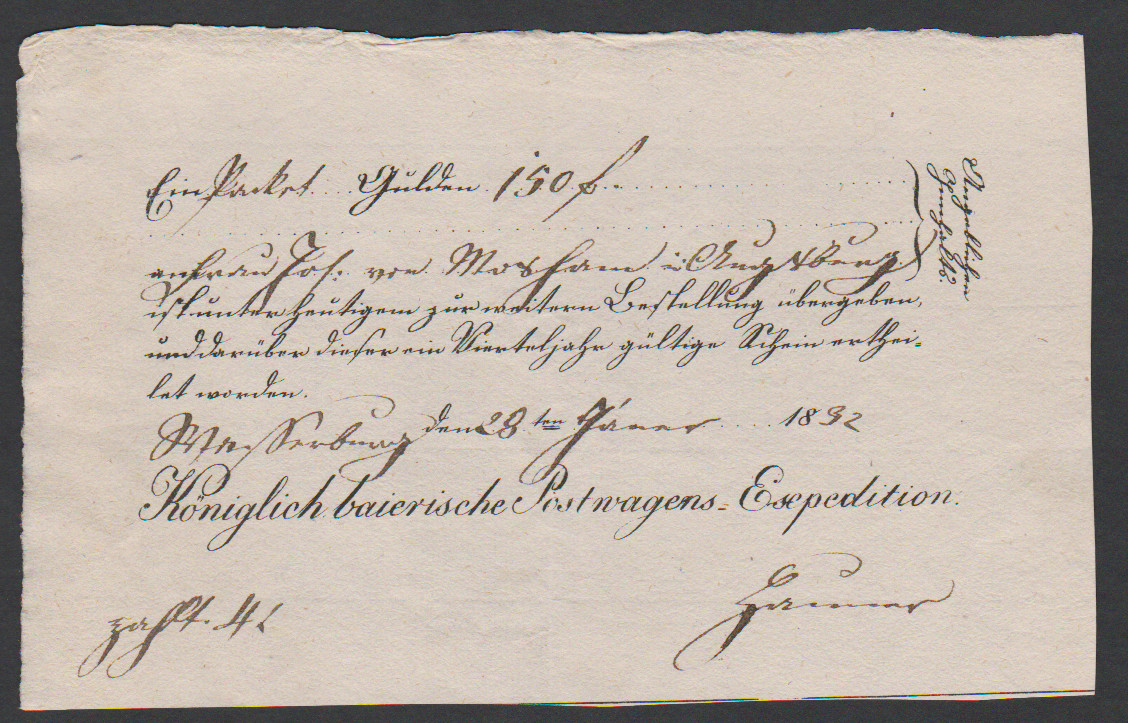 Ein Packet Gulden 150 f
Angeblichen
Gehalts.
an Frau Jos. von Mosham in Augsburg
ist unter heutigem zur weitern Bestellung übergeben,
und darüber dieser ein Vierteljahr gültige Schein erthei-
let worden.
Wasserburg den 28ten Jäner 1832
Königlich baierische Postwagens-Expedition.
zahlt. 4